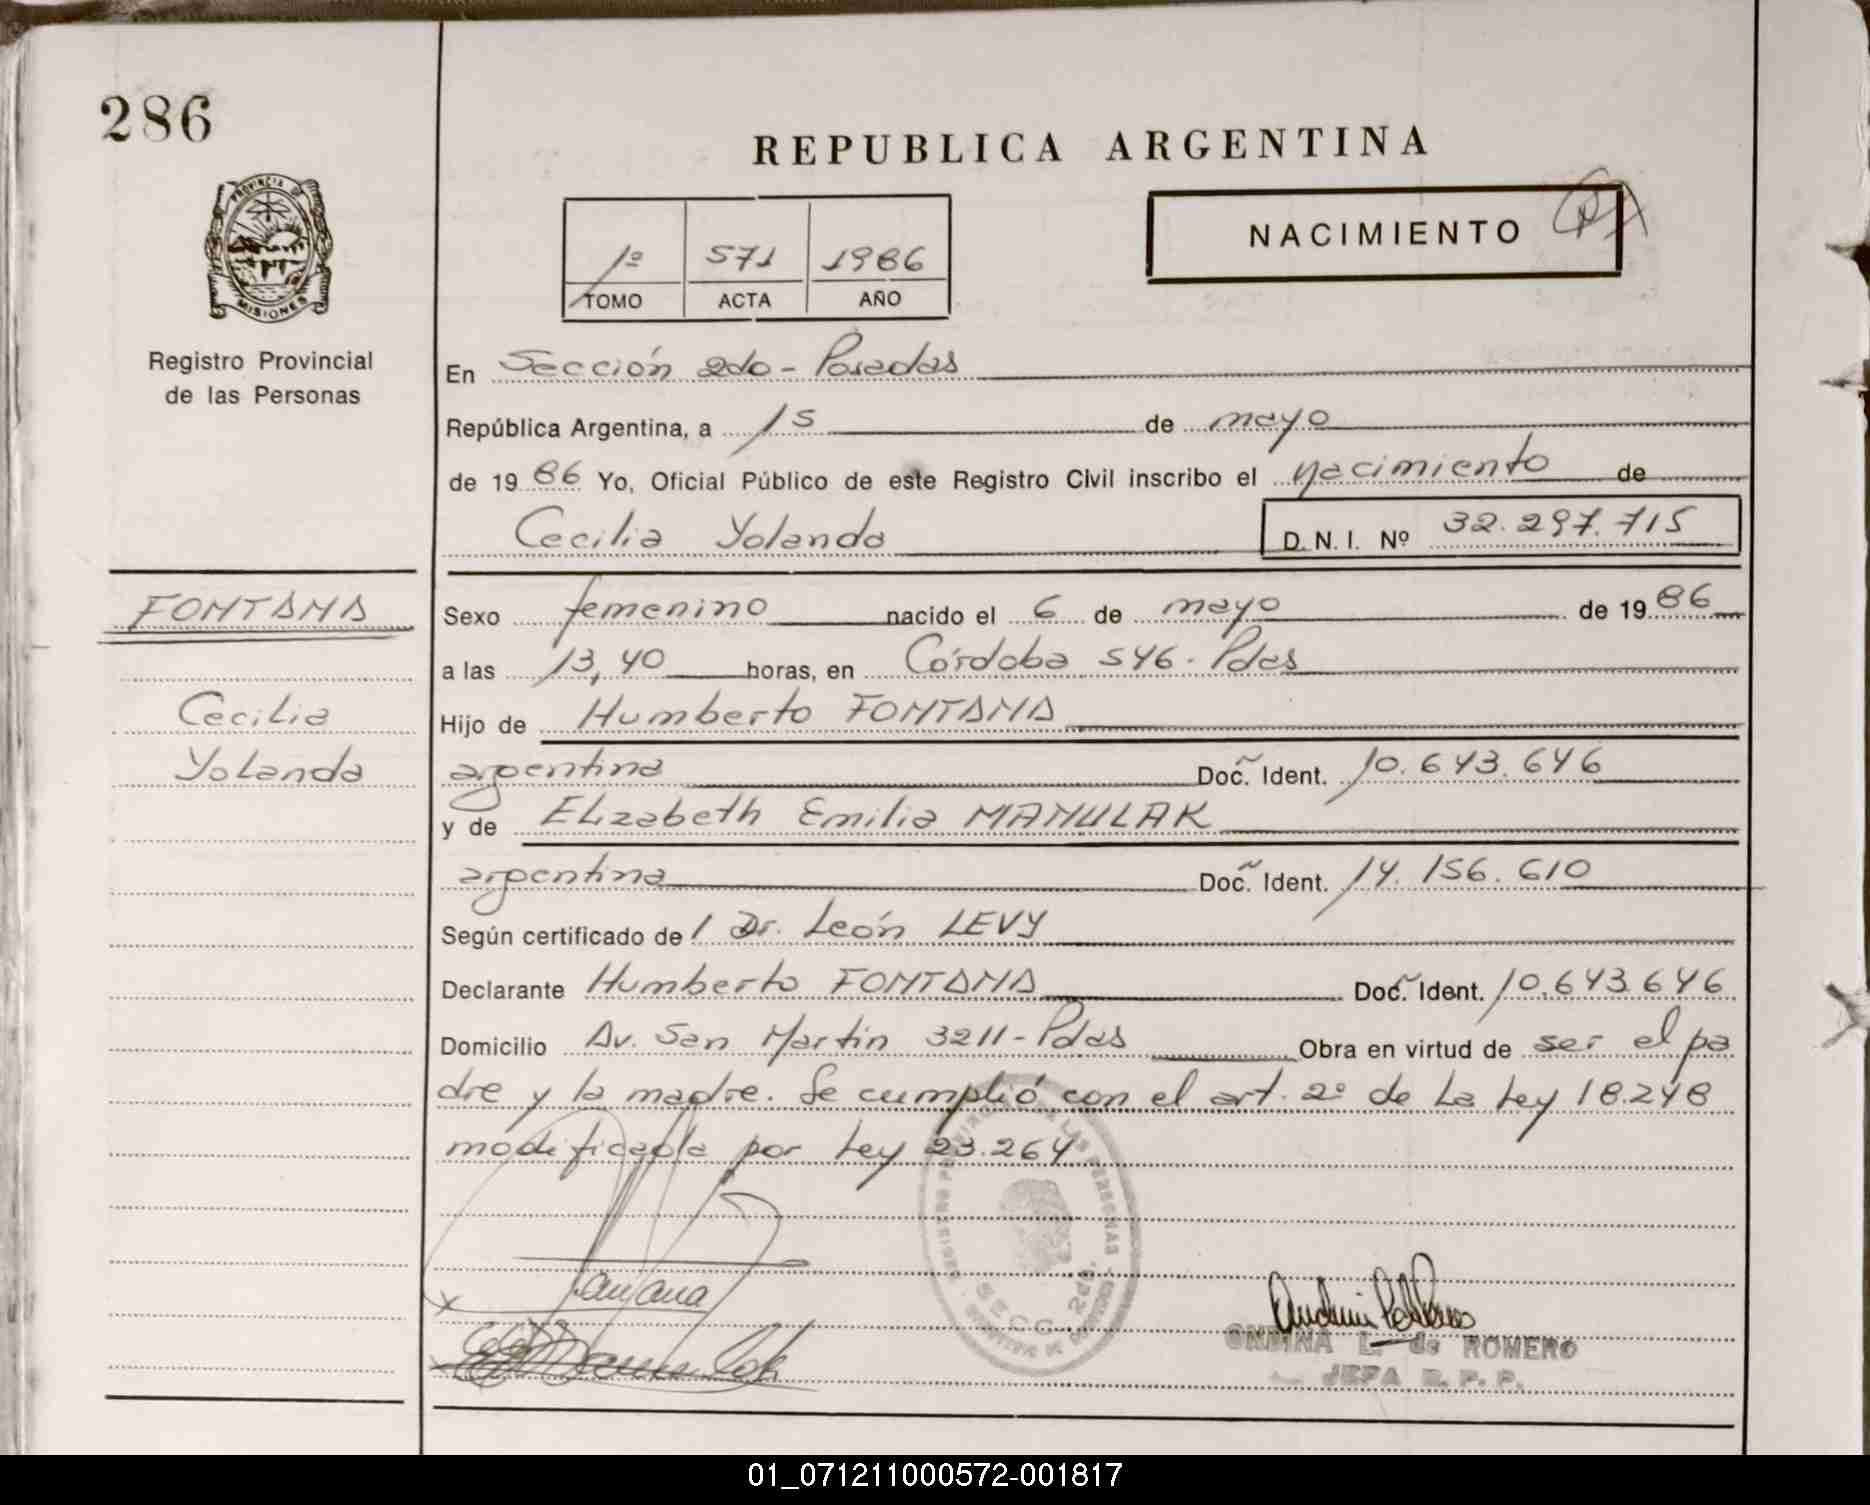 286
REPUBLICA ARGENTINA
PROVINCIA DE
MISIONES
Registro Provincial
de las Personas
1º 571 1986
TOMO ACTA AÑO
NACIMIENTO
En Sección 2da - Posadas
República Argentina, a 15 de mayo
de 1986 Yo, Oficial Público de este Registro Civil inscribo el nacimiento de
Cecilia Yolanda D.N.I. Nº 32.297.715
FONTANA
Cecilia
Yolanda
Sexo femenino nacido el 6 de mayo de 1986
a las 13,40 horas, en Córdoba 546 - Pdas
Hijo de Humberto FONTANA
argentina Doc. Ident. 10.643.646
y de Elizabeth Emilia MANULAK
argentina Doc. Ident. 14.156.610
Según certificado de l Dr. León LEVY
Declarante Humberto FONTANA Doc. Ident. 10.643.646
Domicilio Av. San Martin 3211 - Pdas Obra en virtud de ser el pa
dre y la madre. Se cumplió con el art. 2º de la Ley 18.248
modificada por Ley 23.264
SECC. 2da.
ONDINA L. de ROMERO
JEFA R. P. P.
01_071211000572-001817